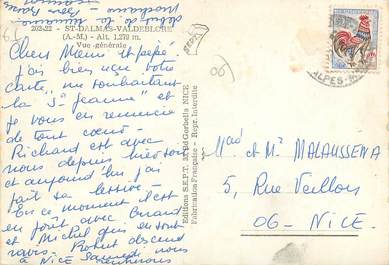 202-22 - ST-DALMAS-VALDEBLORE
(A.-M.) - Alt. 1.270 m.
Vue générale
Chers Mémé et pépé
j'ai bien reçu votre
carte, me souhaitant
la St Jeanne et
je vous en remercie
de tout cœur
Richard est avec
nous depuis hier soir
et aujourd'hui j'ai
fait sa lessive
En ce moment il est
en forêt avec
et Michel qui en sont
ravis. Robert descend
à NICE Samedi nous
Editions S.E.P.T. Bd Gorbella NICE
Fabrication Française - Repr. Interdite
06
ALPES-M
Mad et Mr MALAUSSENA
5, Rue Veillon
06 - NICE.